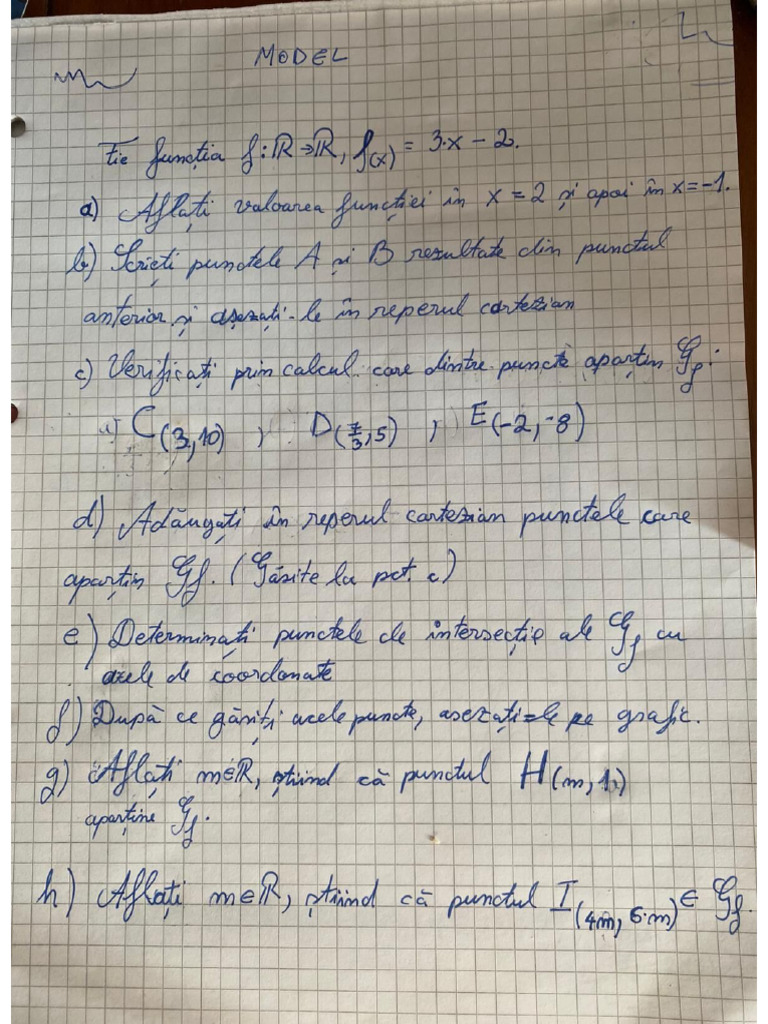 MODEL
Fie funcția f:ℝ→ℝ, f(x) = 3·x − 2.
a) Aflați valoarea funcției în x = 2 și apoi în x = −1.
b) Scrieți punctele A și B rezultate din punctul
anterior și așezați-le în reperul cartezian
c) Verificați prin calcul care dintre puncte aparțin Gf:
C(3,10) , D(7/3,5) , E(−2,−8)
d) Adăugați în reperul cartezian punctele care
aparțin Gf. (Găsite la pct. c)
e) Determinați punctele de intersecție ale Gf cu
axele de coordonate
f) După ce găsiți acele puncte, așezați-le pe grafic.
g) Aflați m∈ℝ, știind că punctul H(m,1)
aparține Gf.
h) Aflați m∈ℝ, știind că punctul I(4m, 6·m) ∈ Gf.